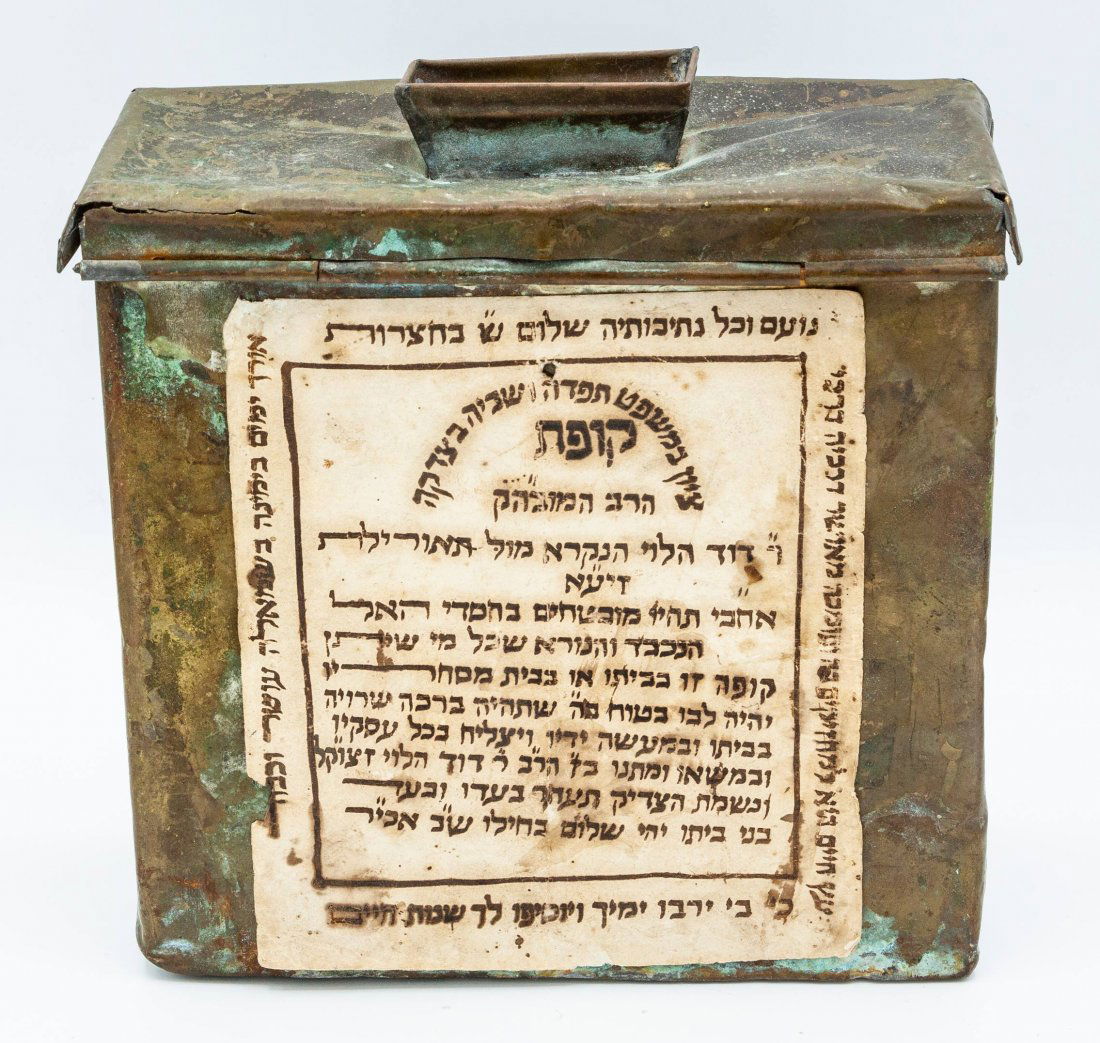 נועם וכל נתיבותיה שלום ש״ בחצרות
ציון במשפט תפדה ושביה בצדקה
קופת
הרב המובהק
ר׳ דוד הלוי הנקרא מול תאורילת
זיע״א
אח״בי תהיו מובטחים בחסדי האל
הנכבד והנורא שכל מי שיתן
קופה זו בביתו או בבית מסחריו
יהיה לבו בטוח בה״ שתהיה ברכה שרויה
בביתו ובמעשה ידיו ויצליח בכל עסקיו
ובמשאו ומתנו בז״ הר״ב ר״ דוד הלוי זצוק״ל
ונשמת הצדיק תעתר בעדו ובעד
בני ביתו יהי שלום בחילו ש״ב אכי״ר
כי בי ירבו ימיך ויוסיפו לך שנות חיים
עץ חיים היא למחזיקים בה ותומכיה מאושר דרכיה דרכי
אורך ימים בימינה בשמאלה עושר וכבוד